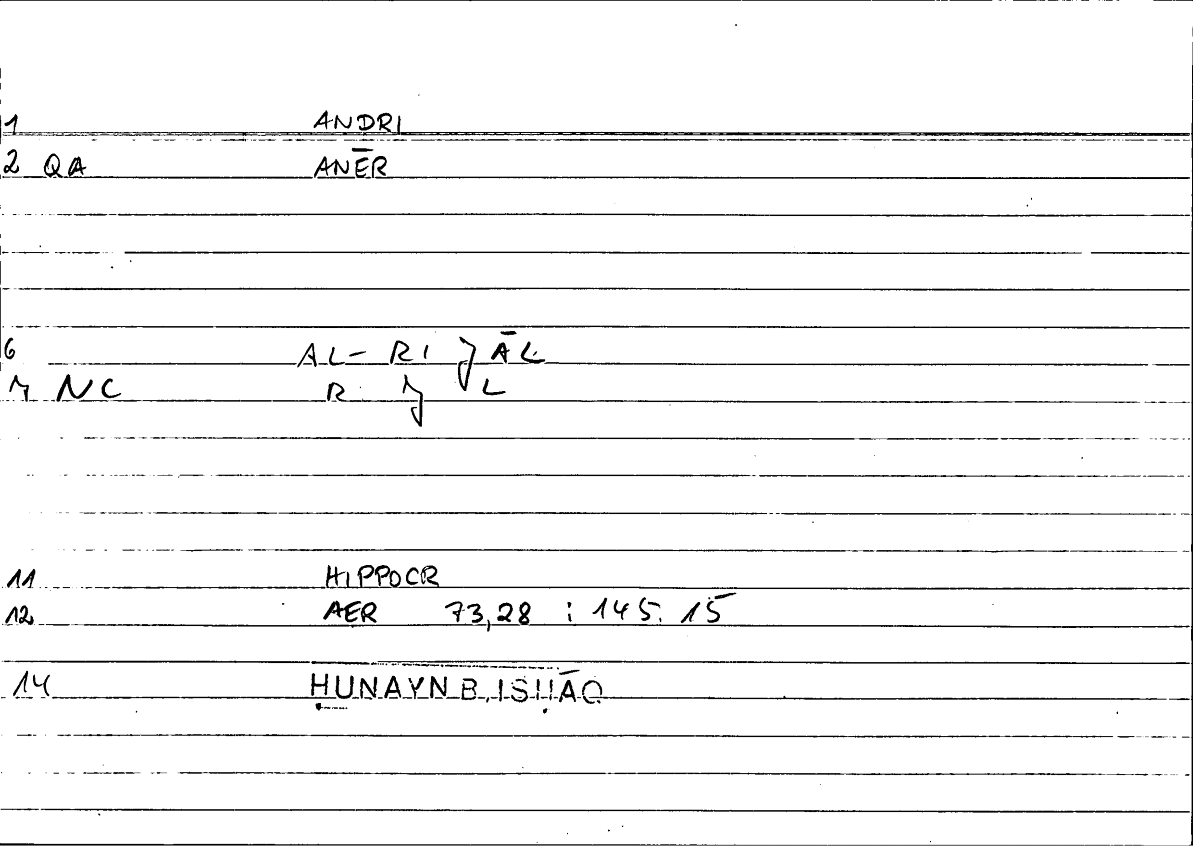 1 ANDRI
2 QA ANĒR
6 AL-RIJĀL
7 NC RJL
11 HIPPOCR
12 AER 73,28 : 145.15
14 ḤUNAYN B. ISḤĀQ